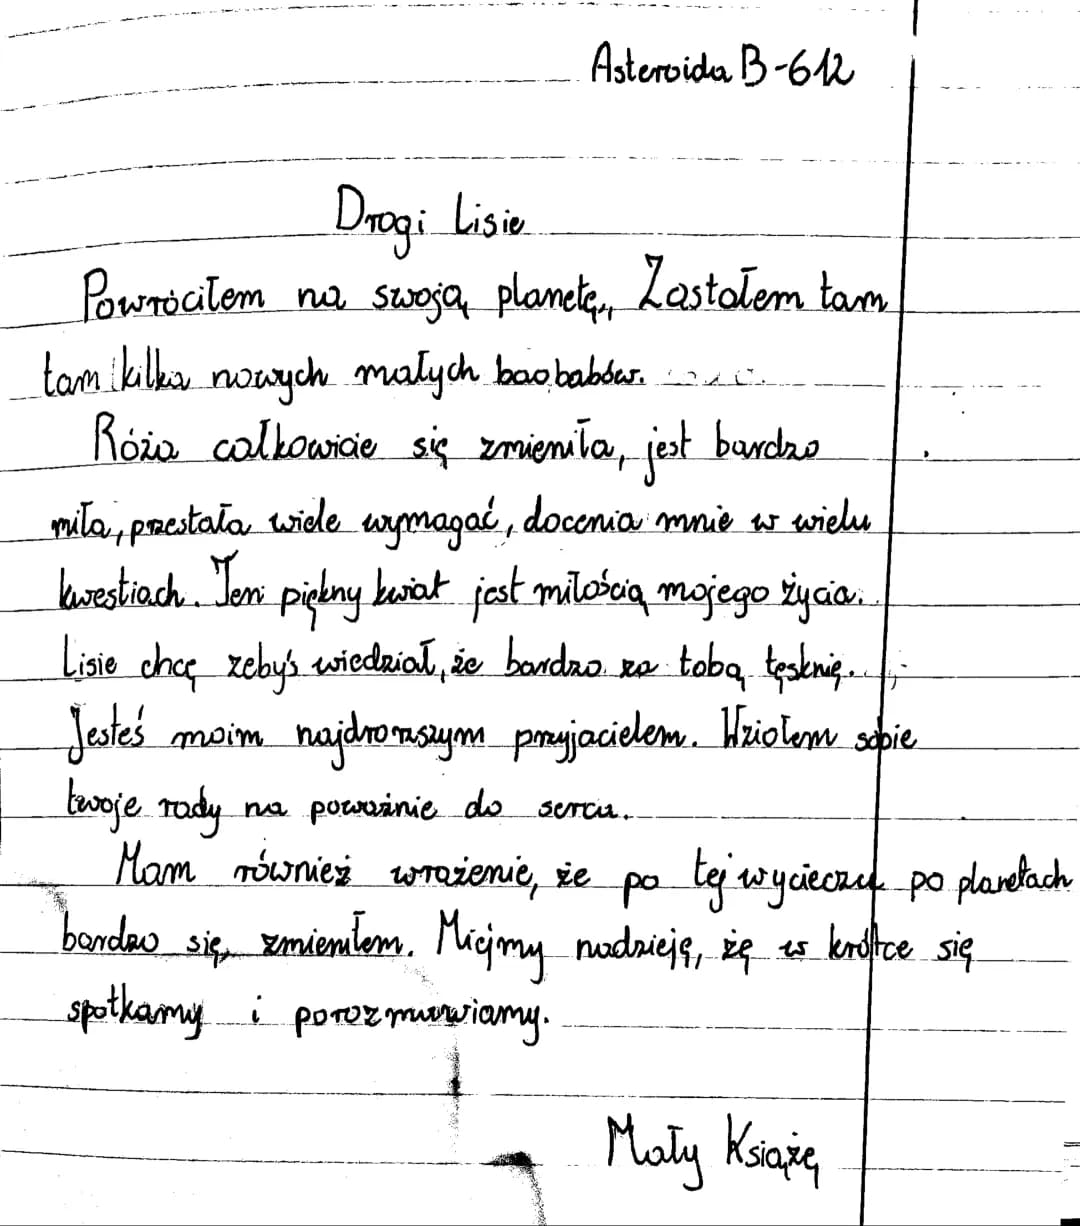 Asteroida B-612
Drogi Lisie
Powróciłem na swoją planetę,, Zastałem tam
tam kilka nowych małych baobabów.
Róża całkowicie się zmieniła, jest bardzo
miła, przestała wiele wymagać, docenia mnie w wielu
kwestiach. Ten piękny kwiat jest miłością mojego życia.
Lisie chcę zebyś wiedział, że bardzo za tobą tęsknię.
Jesteś moim najdrorzszym przyjacielem. Wziołem sobie
twoje rady na poważnie do serca.
Mam również wrażenie, że po tej wycieczce po planetach
bardzo się zmieniłem. Miejmy nadzieję, żę w krótce się
spotkamy i porozmawiamy.
Mały Książę